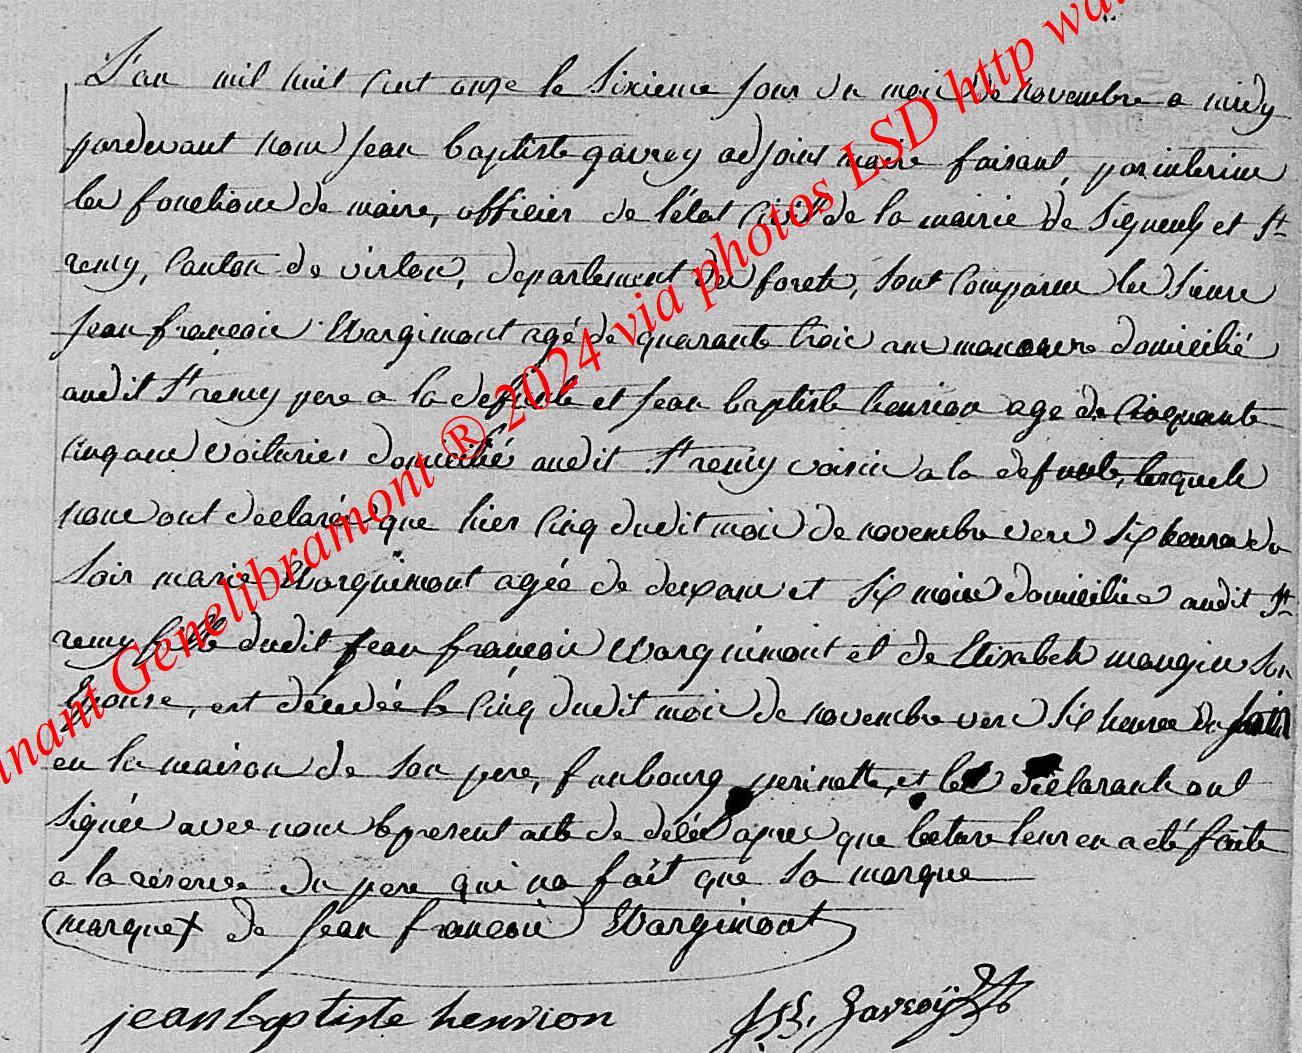 L'an mil huit cent onze le sixieme jour du mois de novembre a midy
pardevant nous jean baptiste gavroy adjoint maire faisant, par interim
les fonctions de maire, officier de l'état civil de la mairie de signeulx et St
remy, canton de virton, departement des forets, sont comparus les sieurs
jean françois Wargimont agé de quarante trois ans manoeuvre domicilié
audit St remy pere a la defunte et jean baptiste henrion age de cinquante
cinq ans voiturier domicilié audit St remy voisin a la defunte, lesquels
nous ont declaré que hier cinq dudit mois de novembre vers six heures du
soir marie Warquimont agée de deux ans et six mois domiciliée audit St
remy fille dudit jean françois Warquimont et de Elizabeth mangin son
Epouse, est décédée le cinq dudit mois de novembre vers six heures du soir
en la maison de son pere, faubourg perinotte, et les déclarants ont
signée avec nous le present acte de décès apres que lecture leur en a eté faite
a la réserve du pere qui na fait que sa marque
marque + de jean françois Wargimont
jean baptiste henrion J.B. Gavroÿ
nant Genelibramont ® 2024 via photos LSD http wa